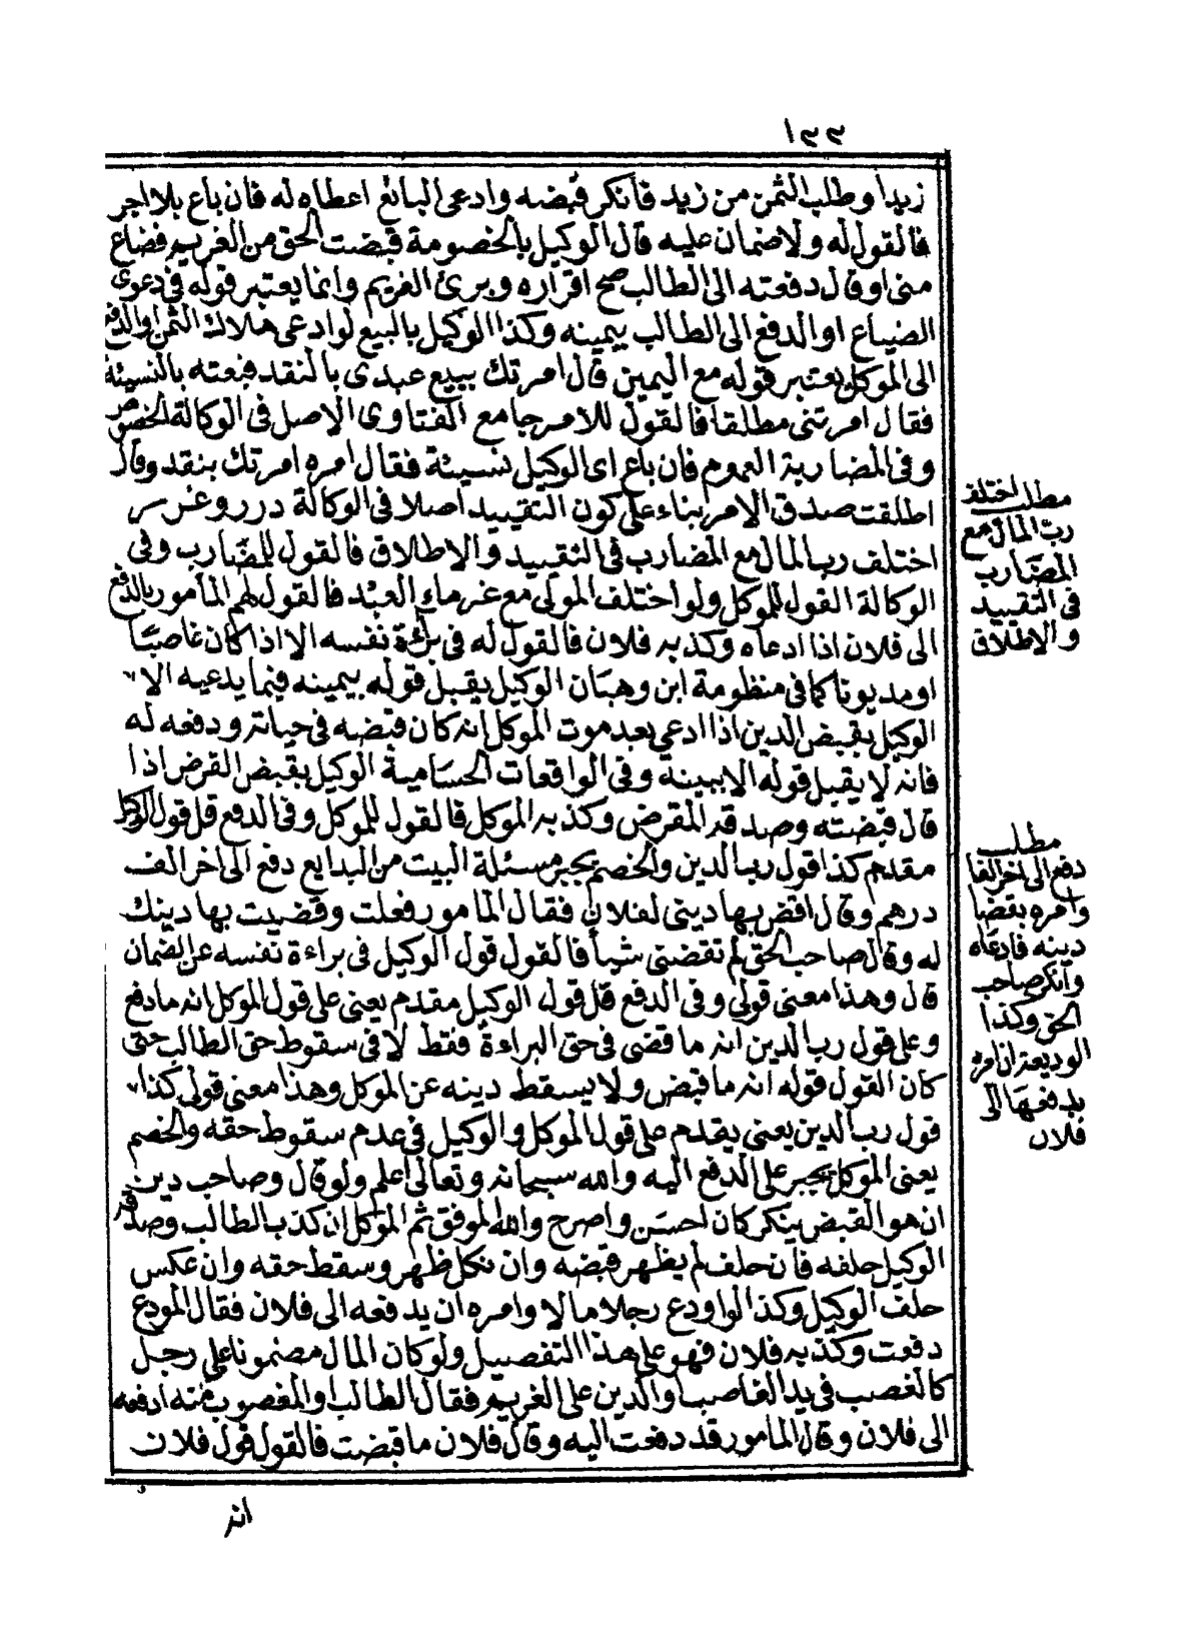 ١٢٢
زيدا وطلب الثمن من زيد فأنكر قبضه وادعى البائع اعطاه له فان باع بلا اجر
فالقول له ولا ضمان عليه قال الوكيل بالخصومة قبضت الحق من الغريم فضاع
منى او قال دفعته الى الطالب صح اقراره وبرئ الغريم وانما يعتبر قوله فى دعوى
الضياع او الدفع الى الطالب بيمينه وكذا الوكيل بالبيع لو ادعى هلاك الثمن او الدفع
الى الموكل يعتبر قوله مع اليمين قال امرتك ببيع عبدى بالنقد فبعته بالنسيئة
فقال امرتنى مطلقا فالقول للامر جامع الفتاوى الاصل فى الوكالة الخصوص
وفى المضاربة العموم فان باع اى الوكيل نسيئة فقال امره امرتك بنقد وقال
اطلقت صدق الامر بناء على كون التقييد اصلا فى الوكالة درر وغرر
اختلف رب المال مع المضارب فى التقييد والاطلاق فالقول للمضارب وفى
الوكالة القول للموكل ولو اختلف المولى مع غرماء العبد فالقول لهم المأمور بالدفع
الى فلان اذا ادعاه وكذبه فلان فالقول له فى برءة نفسه الا اذا كان غاصبا
او مديونا كما فى منظومة ابن وهبان الوكيل يقبل قوله بيمينه فيما يدعيه الا
الوكيل بقبض الدين اذا ادعى بعد موت الموكل انه كان قبضه فى حياته ودفعه له
فانه لا يقبل قوله الا ببينة وفى الواقعات الحسامية الوكيل بقبض القرض اذا
قال قبضته وصدقه المقرض وكذبه الموكل فالقول للموكل وفى الدفع قل قول الوكيل
مقدم كذا قول رب الدين والخصم يجبر مسئلة البيت من البدايع دفع الى اخر الف
درهم وقال اقض بها دينى لفلان فقال المأمور فعلت وقضيت بها دينك
له وقال صاحب الحق لم تقضنى شيأ فالقول قول الوكيل فى براءة نفسه عن الضمان
قال وهذا معنى قولى وفى الدفع قل قول الوكيل مقدم يعنى على قول الموكل انه ما دفع
وعلى قول رب الدين انه ما قضى فى حق البراءة فقط لا فى سقوط حق الطالب حتى
كان القول قوله انه ما قبض ولا يسقط دينه عن الموكل وهذا معنى قولى كذا
قول رب الدين يعنى يقدم على قول الموكل والوكيل فى عدم سقوط حقه والخصم
يعنى الموكل يجبر على الدفع اليه والله سبحانه وتعالى اعلم ولو قال وصاحب دين
ان هو القبض ينكر كان احسن واصرح والله الموفق ثم الموكل ان كذب الطالب وصدق
الوكيل حلفه فان حلف لم يظهر قبضه وان نكل ظهر وسقط حقه وان عكس
حلف الوكيل وكذا لو اودع رجلا مالا وامره ان يدفعه الى فلان فقال المودع
دفعت وكذبه فلان فهو على هذا التفصيل ولو كان المال مضمونا على رجل
كالغصب فى يد الغاصب والدين على الغريم فقال الطالب او المغصوب منه ادفعه
الى فلان وقال المأمور قد دفعت اليه وقال فلان ما قبضت فالقول قول فلان
انه
مطلب اختلف
رب المال مع
المضارب
فى التقييد
والاطلاق
مطلب
دفع الى اخر الفا
وامره بقضا
دينه فادعاه
وانكر صاحب
الحق وكذا
الوديعة ان امره
بدفعها الى
فلان